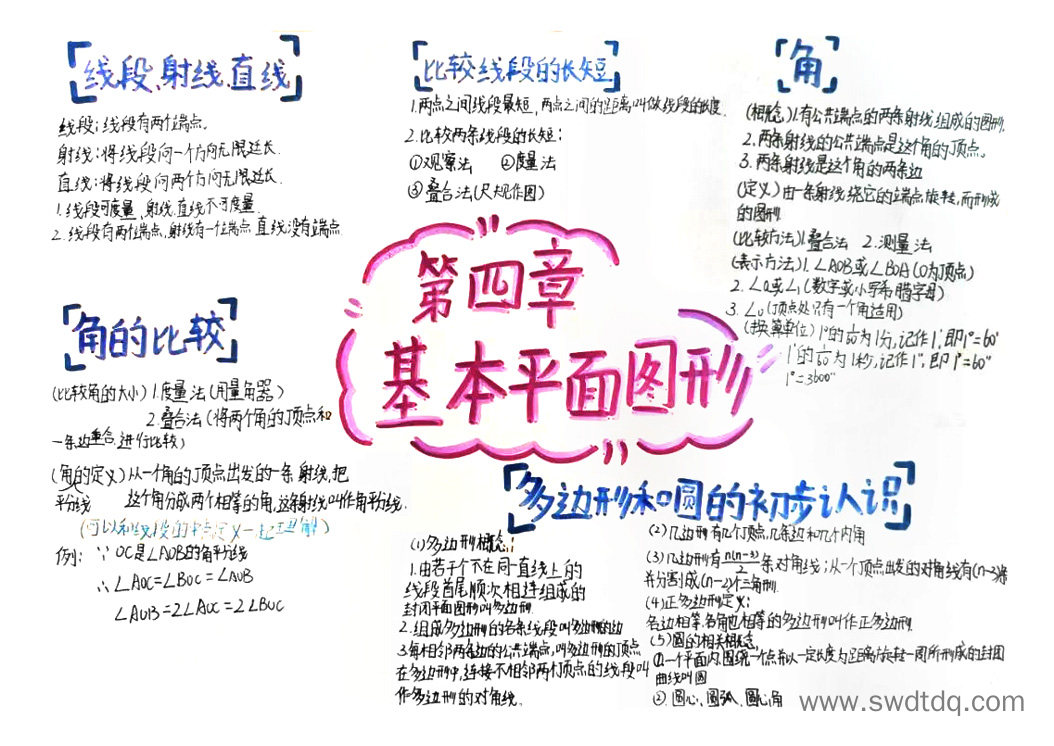 线段、射线、直线
线段：线段有两个端点。
射线：将线段向一个方向无限延长.
直线：将线段向两个方向无限延长.
1.线段可度量，射线、直线不可度量.
2.线段有两个端点，射线有一个端点 直线没有端点
比较线段的长短
1.两点之间线段最短，两点之间的距离叫做线段的长度.
2.比较两条线段的长短：
①观察法 ②度量法
③叠合法(尺规作图)
角
(概念)1.有公共端点的两条射线组成的图形.
2.两条射线的公共端点是这个角的顶点。
3.两条射线是这个角的两条边
(定义)由一条射线绕它的端点旋转，而形成
的图形
(比较方法)1.叠合法 2.测量法
(表示方法)1.∠AOB或∠BOA(O为顶点)
2.∠α或∠1(数字或小写希腊字母)
3.∠O(顶点处只有一个角适用)
(换算单位)1°的1/60为1分，记作1′，即1°=60′
1′的1/60为1秒，记作1″，即1′=60″
1°=3600″
第四章
基本平面图形
角的比较
(比较角的大小)1.度量法(用量角器)
2.叠合法(将两个角的顶点和
一条边重合，进行比较)
(角的定义)从一个角的顶点出发的一条射线，把
平分线 这个角分成两个相等的角，这条射线叫作角平分线.
(可以和线段的中点定义一起理解)
例： ∵OC是∠AOB的角平分线
∴∠AOC=∠BOC=∠AOB
∠AOB=2∠AOC=2∠BOC
多边形和圆的初步认识
(1)多边形概念：
1.由若干个不在同一直线上的
线段首尾顺次相连组成的
封闭平面图形叫多边形.
2.组成多边形的各条线段叫多边形的边
3.每相邻两条边的公共端点，叫多边形的顶点
在多边形中，连接不相邻两个顶点的线段叫
作多边形的对角线.
(2)几边形有几个顶点，几条边和几个内角
(3)几边形有n(n-3)/2条对角线；从一个顶点出发的对角线有(n-3)条
并分割成(n-2)个三角形.
(4)正多边形定义：
各边相等，各角也相等的多边形叫作正多边形
(5)圆的相关概念
①一个平面内，围绕一个点并以一定长度为距离旋转一周所形成的封闭
曲线叫圆
②.圆心、圆弧、圆心角
www.swdtdq.com